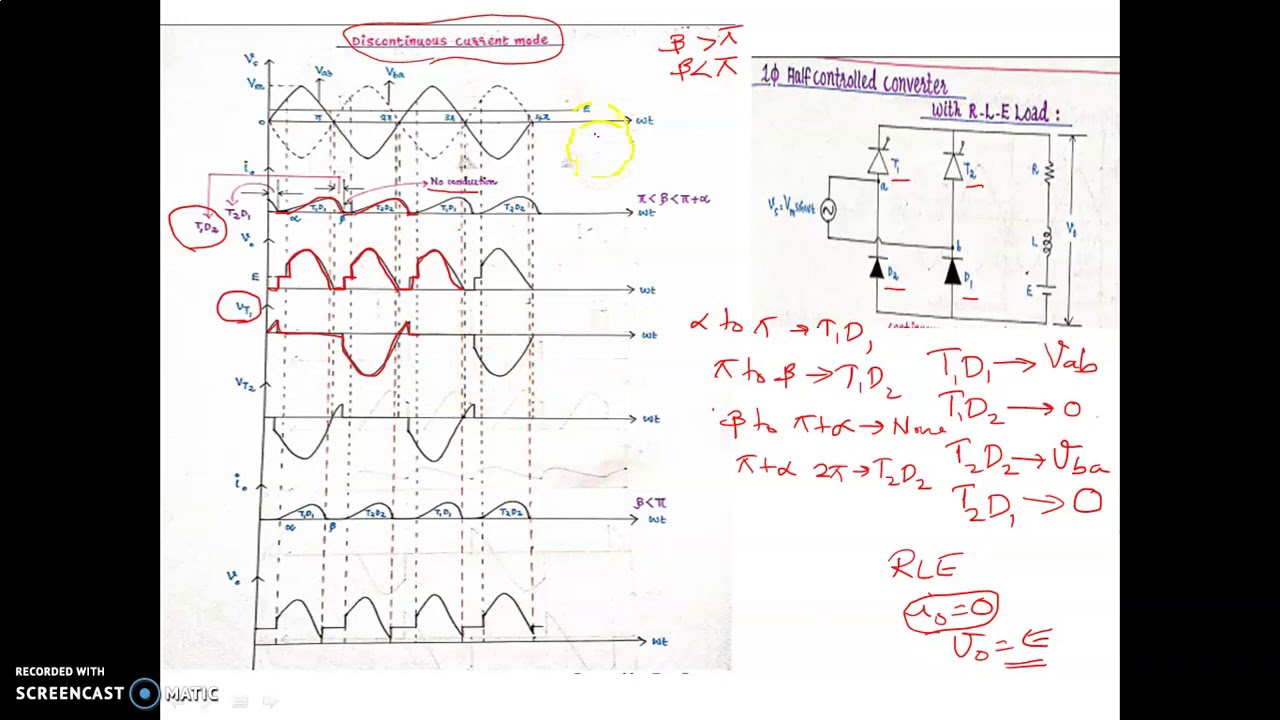 Discontinuous current mode
β > π
β < π
Vs
Vm
Vab
Vba
E
0
π
2π
3π
4π
ωt
io
No conduction
π < β < π+α
T2D1
T1D2
α
T1D1
β
T2D2
T1D1
T2D2
ωt
Vo
E
ωt
VT1
ωt
VT2
ωt
io
β < π
T1D1
T2D2
T1D1
T2D2
α
β
ωt
Vo
ωt
1Φ Half controlled converter
with R-L-E Load :
T1
T2
R
a
Vs = Vm sinωt
Vo
b
L
D2
D1
E
α to π → T1D1
π to β → T1D2
β to π+α → None
π+α 2π → T2D2
T1D1 → Vab
T1D2 → 0
T2D2 → Vba
T2D1 → 0
RLE
io = 0
Vo = E
RECORDED WITH
SCREENCAST MATIC